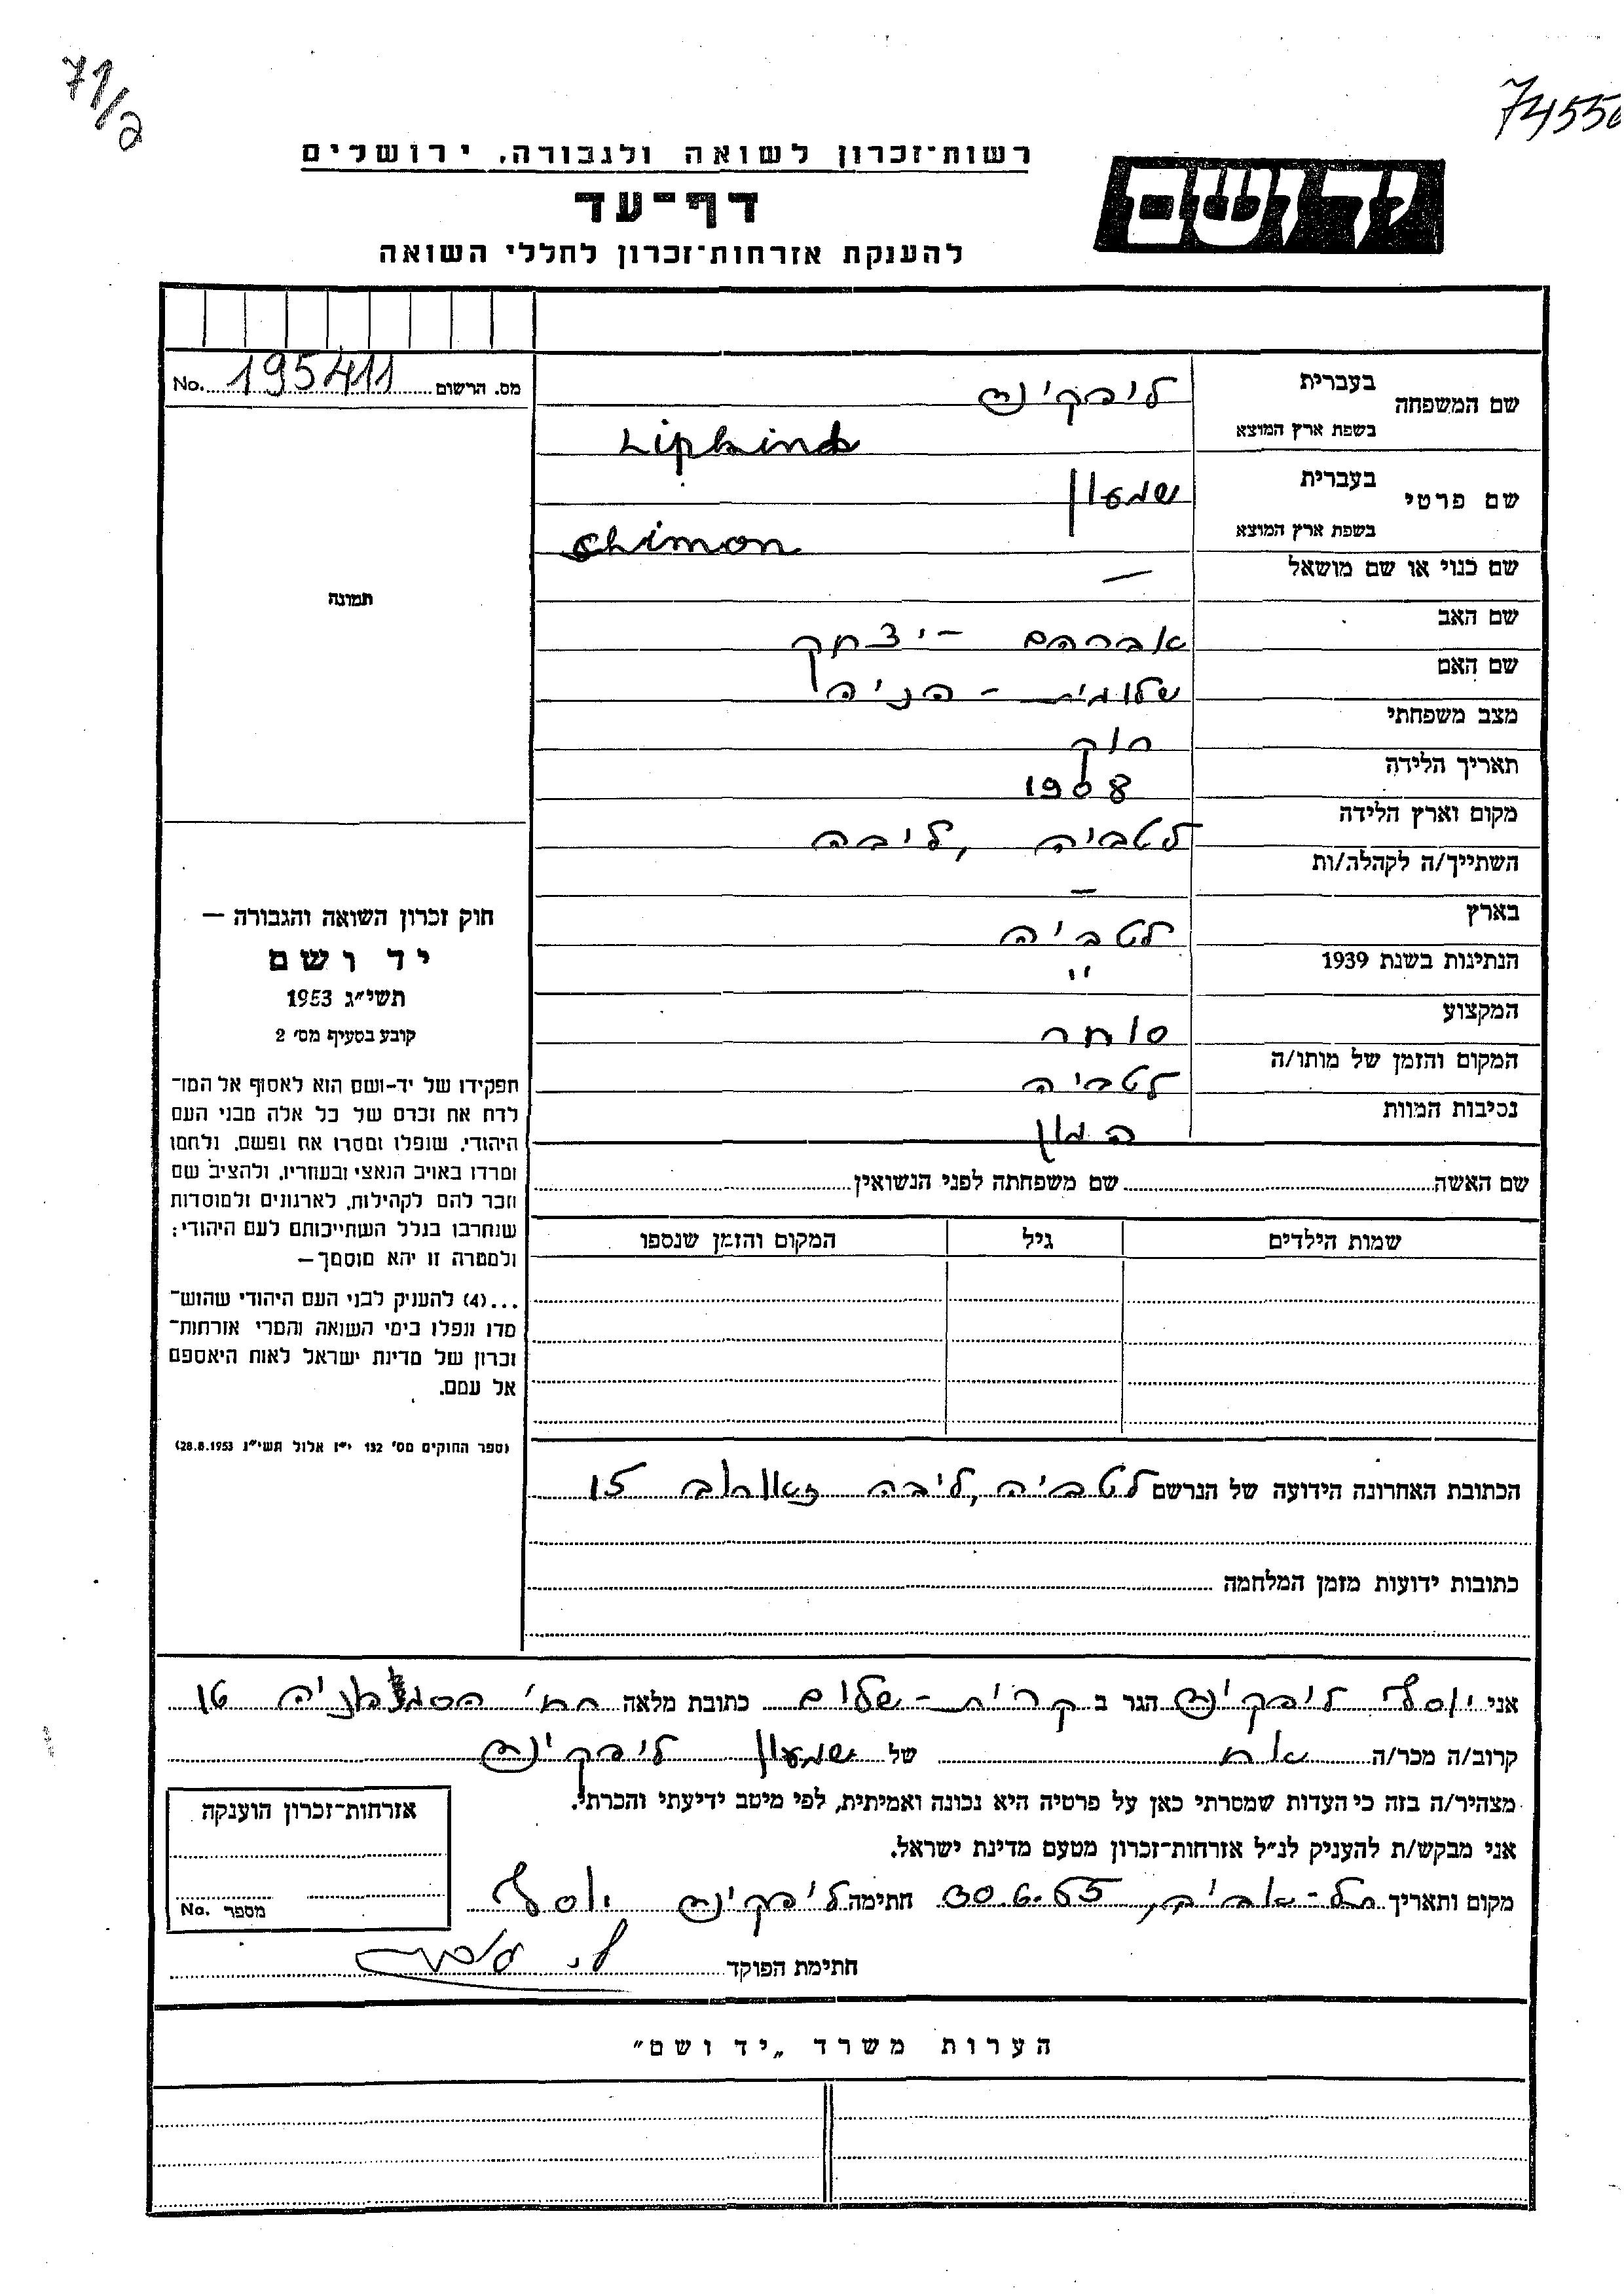 71/2
7455
רשות־זכרון לשואה ולגבורה, ירושלים
יד ושם
דף־עד
להענקת אזרחות־זכרון לחללי השואה
מס. הרשום 195411 No.
שם המשפחה
בעברית ליפקינד
בשפת ארץ המוצא Lipkind
שם פרטי
בעברית שמעון
בשפת ארץ המוצא Shimon
שם כנוי או שם מושאל —
שם האב אברהם - יצחק
שם האם שלומית - הניה
מצב משפחתי רוק
תאריך הלידה 1908
מקום וארץ הלידה לטביה, ליבה
השתייך/ה לקהלה/ות —
בארץ לטביה
הנתינות בשנת 1939 "
המקצוע סוחר
המקום והזמן של מותו/ה לטביה
נסיבות המוות
תמונה
חוק זכרון השואה והגבורה —
יד ושם
תשי״ג 1953
קובע בסעיף מס׳ 2
תפקידו של יד-ושם הוא לאסוף אל המו־
לדת את זכרם של כל אלה מבני העם
היהודי, שנפלו ומסרו את נפשם, נלחמו
ומרדו באויב הנאצי ובעוזריו, ולהציב שם
וזכר להם לקהילות, לארגונים ולמוסדות
שנחרבו בגלל השתייכותם לעם היהודי:
ולמטרה זו יהא מוסמך—
...(4) להעניק לבני העם היהודי שהוש־
מדו ונפלו בימי השואה והמרי אזרחות־
זכרון של מדינת ישראל לאות היאספם
אל עמם.
(ספר החוקים מס׳ 132 י״ז אלול תשי״ג 28.8.1953)
שם האשה שם משפחתה לפני הנשואין
שמות הילדים גיל המקום והזמן שנספו
הכתובת האחרונה הידועה של הנרשם לטביה, ליבה 15
כתובות ידועות מזמן המלחמה
אני יוסף ליפקינד הגר ב קרית - שלום כתובת מלאה רח׳ 16
קרוב/ה מכר/ה אח של שמעון ליפקינד
מצהיר/ה בזה כי העדות שמסרתי כאן על פרטיה היא נכונה ואמיתית, לפי מיטב ידיעתי והכרתי.
אני מבקש/ת להעניק לנ״ל אזרחות־זכרון מטעם מדינת ישראל.
מקום ותאריך תל-אביב, 30.6.65 חתימה ליפקינד יוסף
חתימת הפוקד
אזרחות־זכרון הוענקה
מספר No.
הערות משרד „יד ושם״